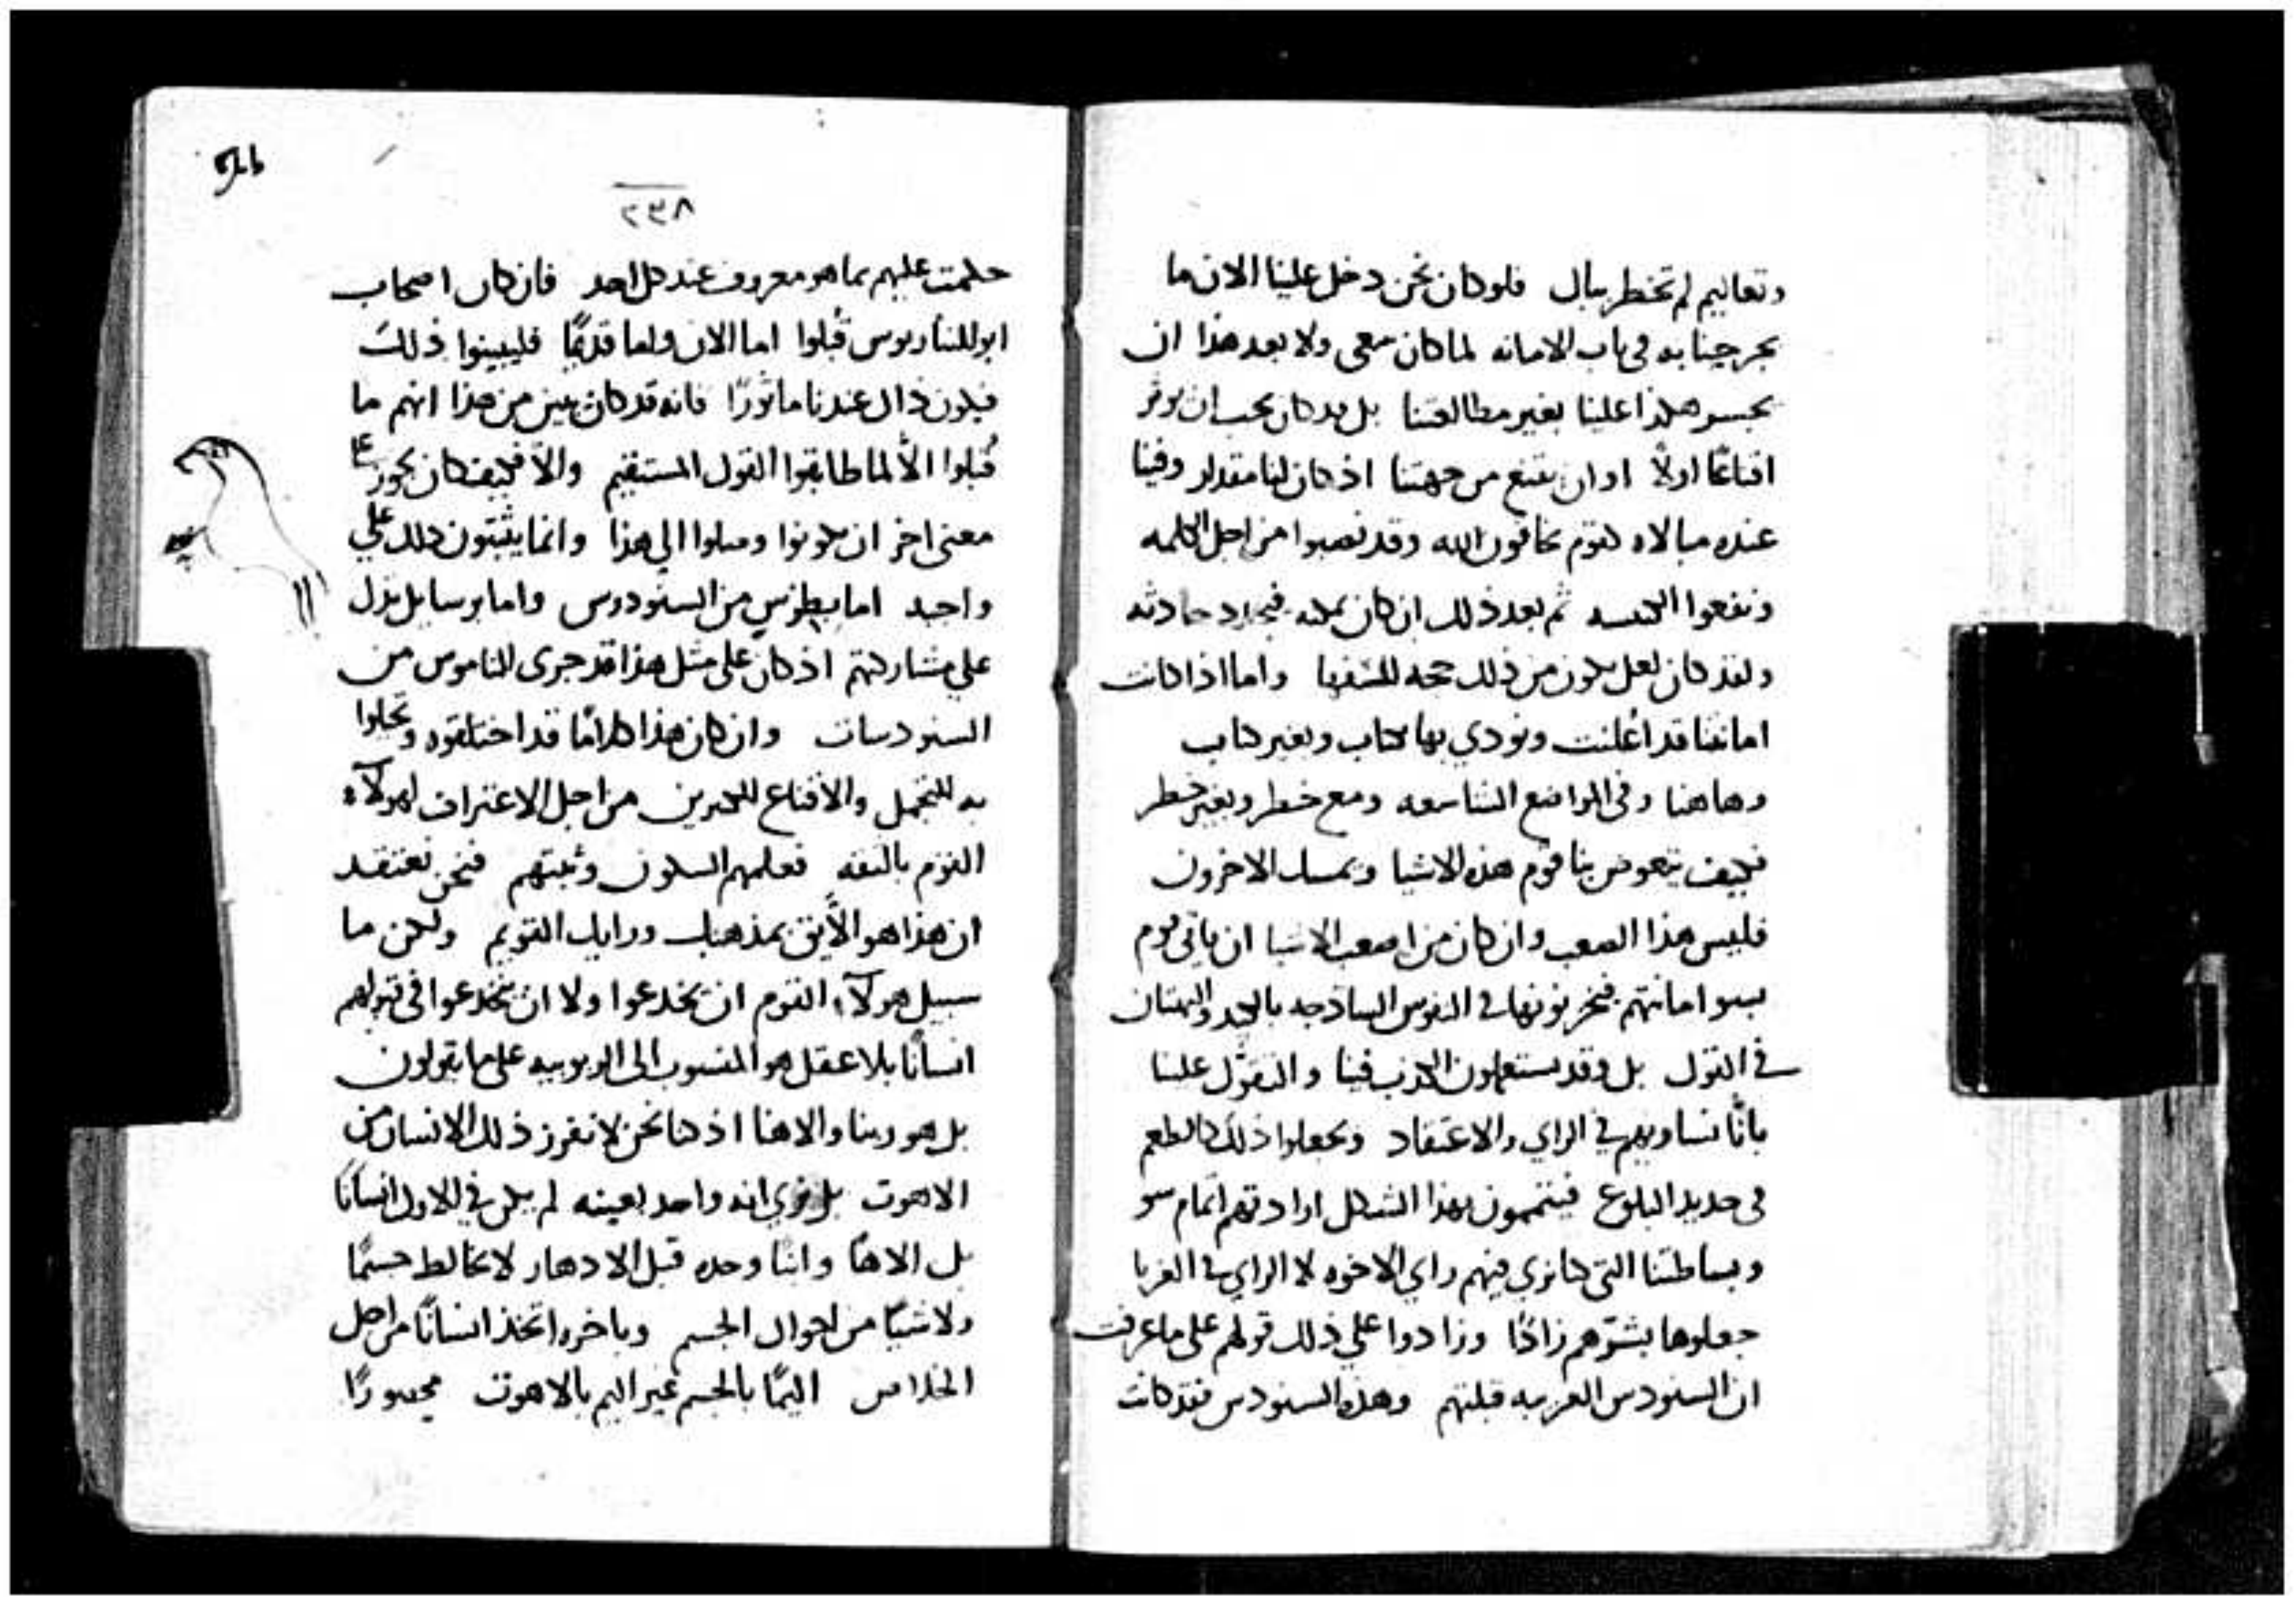 وتعاليم لم تخطر ببال فلو كان نحن دخل علينا الان ما
بحر جينا به في باب الامانه لما كان معنى ولا بعد هذا ان
بحسر هكذا علينا بغير مطالعتنا بل قد كان يجب ان يوثر
اقناعًا اولًا او ان يقنع من جهتنا اذ كان لنا مقدار وفينا
عنده مبالاه كقوم يخافون الله وقد نصبوا من اجل الكلمه
ونفعوا الكنيسه ثم بعد ذلك ان كان يمكنه فيجدد حادثه
ولقد كان لعل يكون من ذلك حجه للسفها واما اذا كانت
امانتنا قد اُعلنت ونودي بها بكتاب وبغير كتاب
وهاهنا وفي المواضع الشاسعه ومع خطر وبغير خطر
فكيف يتعوض بنا قوم هذه الاشيا ويمسك الاخرون
فليس هذا الصعب وان كان من اصعب الاشيا ان ياتي قوم
بسو امانتهم فيخزنونها في النفوس الساذجه بالكيد والبهتان
في القول بل وقد يستعملون الكذب فينا والتقوّل علينا
بانّا نساويهم في الراي والاعتقاد ويجعلوا ذلك كالطعم
في حديد البلوع فيتممون بهذا الشكل ارادتهم اتمام سو
وبساطتنا التي كنا نرى فيهم راي الاخوه لا الراي في الغربا
جعلوها بشرّهم زادًا وزادوا علي ذلك قولهم على ما عرفت
ان السنودس الغربيه قبلتهم وهذه السنودس فقد كانت
٢٣٨
حكمت عليهم بما هو معروف عند كل احد فان كان اصحاب
ابوللناريوس قُبلوا اما الان واما قديمًا فليبينوا ذلك
فيكون ذاك عندنا ماثورًا فانه قد كان يبين من هذا انهم ما
قُبلوا الّا لما طابقوا القول المستقيم والّا فكيف كان يجوز على
معنى اخر ان يكونوا وصلوا الي هذا وانما يثبتون ذلك علي
واحد اما بطوس من السنودوس واما برسايل بذل
علي مشاركتهم اذ كان على مثل هذا قد جرى الناموس من
السنودسات وان كان هذا كلامًا قد اختلقوه وتحلوا
به للتجمل والاقناع للكثيرين من اجل الاعتراف لهولآء
القوم بالثقه فعلمهم السكوت وثبتهم فنحن نعتقد
ان هذا هو الأليق بمذهبك ورايك القويم ولكن ما
سبيل هولآء القوم ان يخدعوا ولا ان ينخدعوا في قبولهم
انسانًا بلا عقل هو المنسوب الى الربوبيه على ما يقولون
بل هو ربنا والاهنا اذ كنا نحن لا نفرز ذلك الانسان من
الاهوت بل نرى انه واحد بعينه لم يكن في الاول انسانًا
بل الاهًا وابنًا وحده قبل الادهار لا يخالط جسمًا
ولا شيًا من احوال الجسم وباخره اتخذ انسانًا من اجل
الخلاص اليمًا بالجسم غير اليم بالاهوت محصورًا